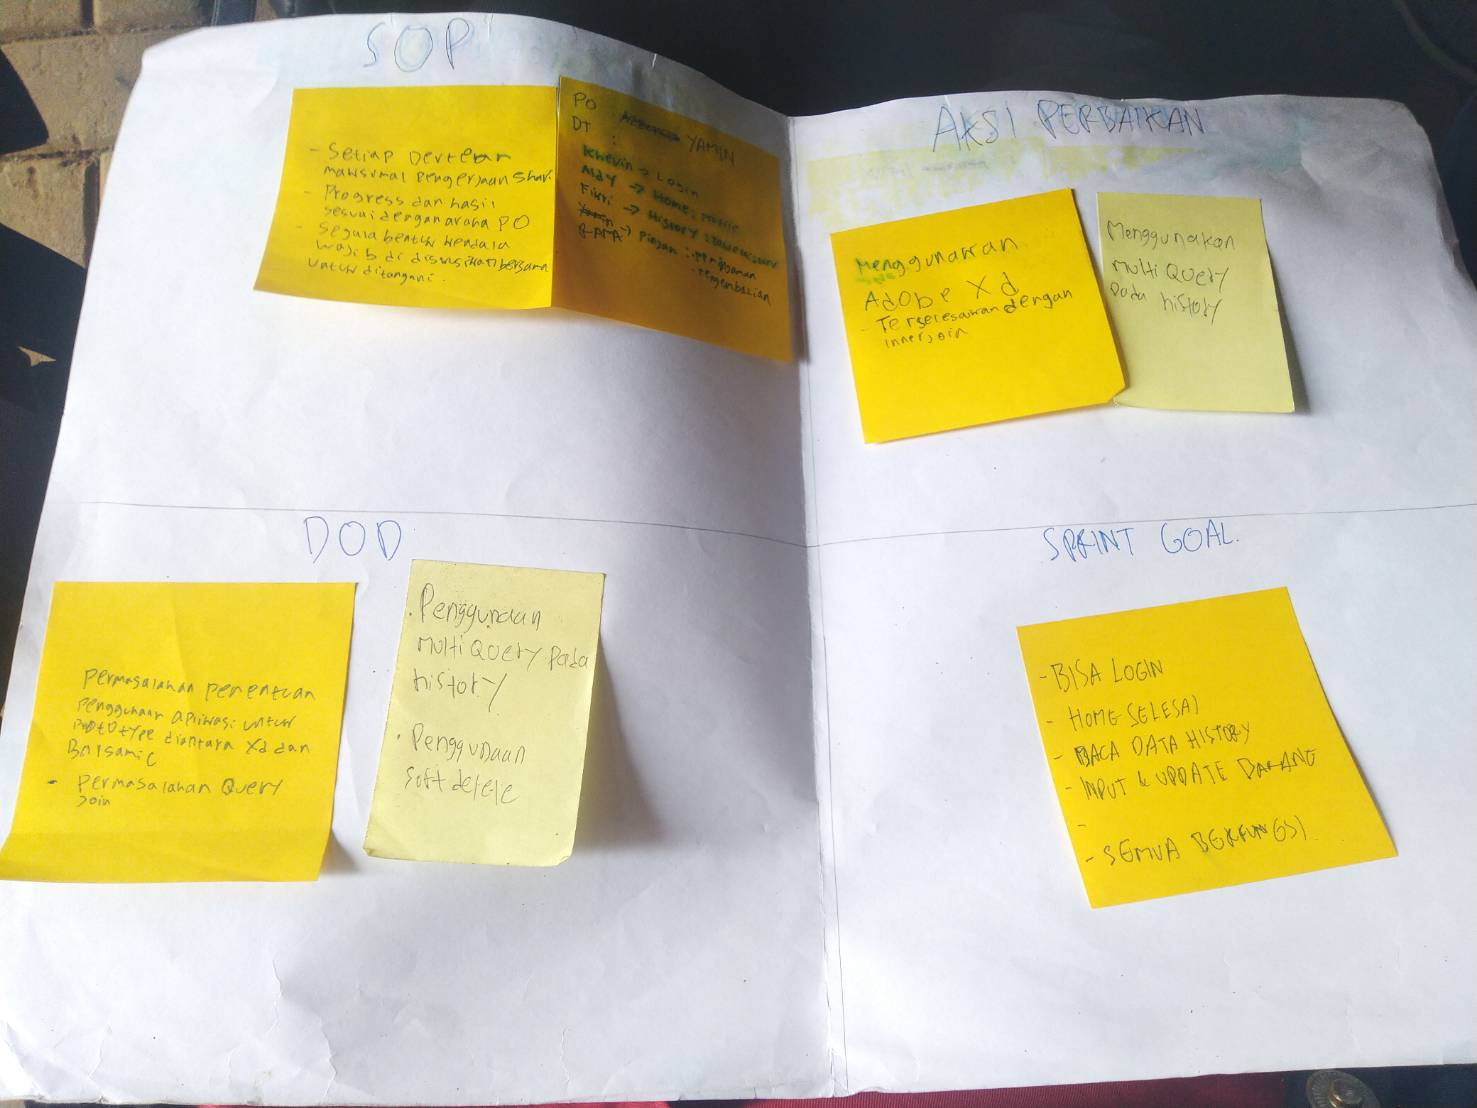 SOP
- Setiap
maksimal pengerjaan
- Progress dan hasil
sesuai dengan PO
- Segala bentuk kendala
wajib di diskusikan bersama
untuk ditangani.
PO YAMIN
DT :
Khevin → Login
Aldy → Home: Profile
Fikri → History :
BAMA → Pinjam :
AKSI PERBAIKAN
Menggunakan
Adobe Xd
- Terselesaikan dengan
inner join
Menggunakan
Multi Query
pada history
DOD
permasalahan penentuan
penggunaan aplikasi untuk
prototype diantara Xd dan
Balsamic
- permasalahan Query
Join
. Penggunaan
Multi Query pada
history
. Penggunaan
Soft delete
SPRINT GOAL.
- BISA LOGIN
- HOME SELESAI
- BACA DATA HISTORY
- INPUT & UPDATE BARANG
-
- SEMUA BERFUNGSI